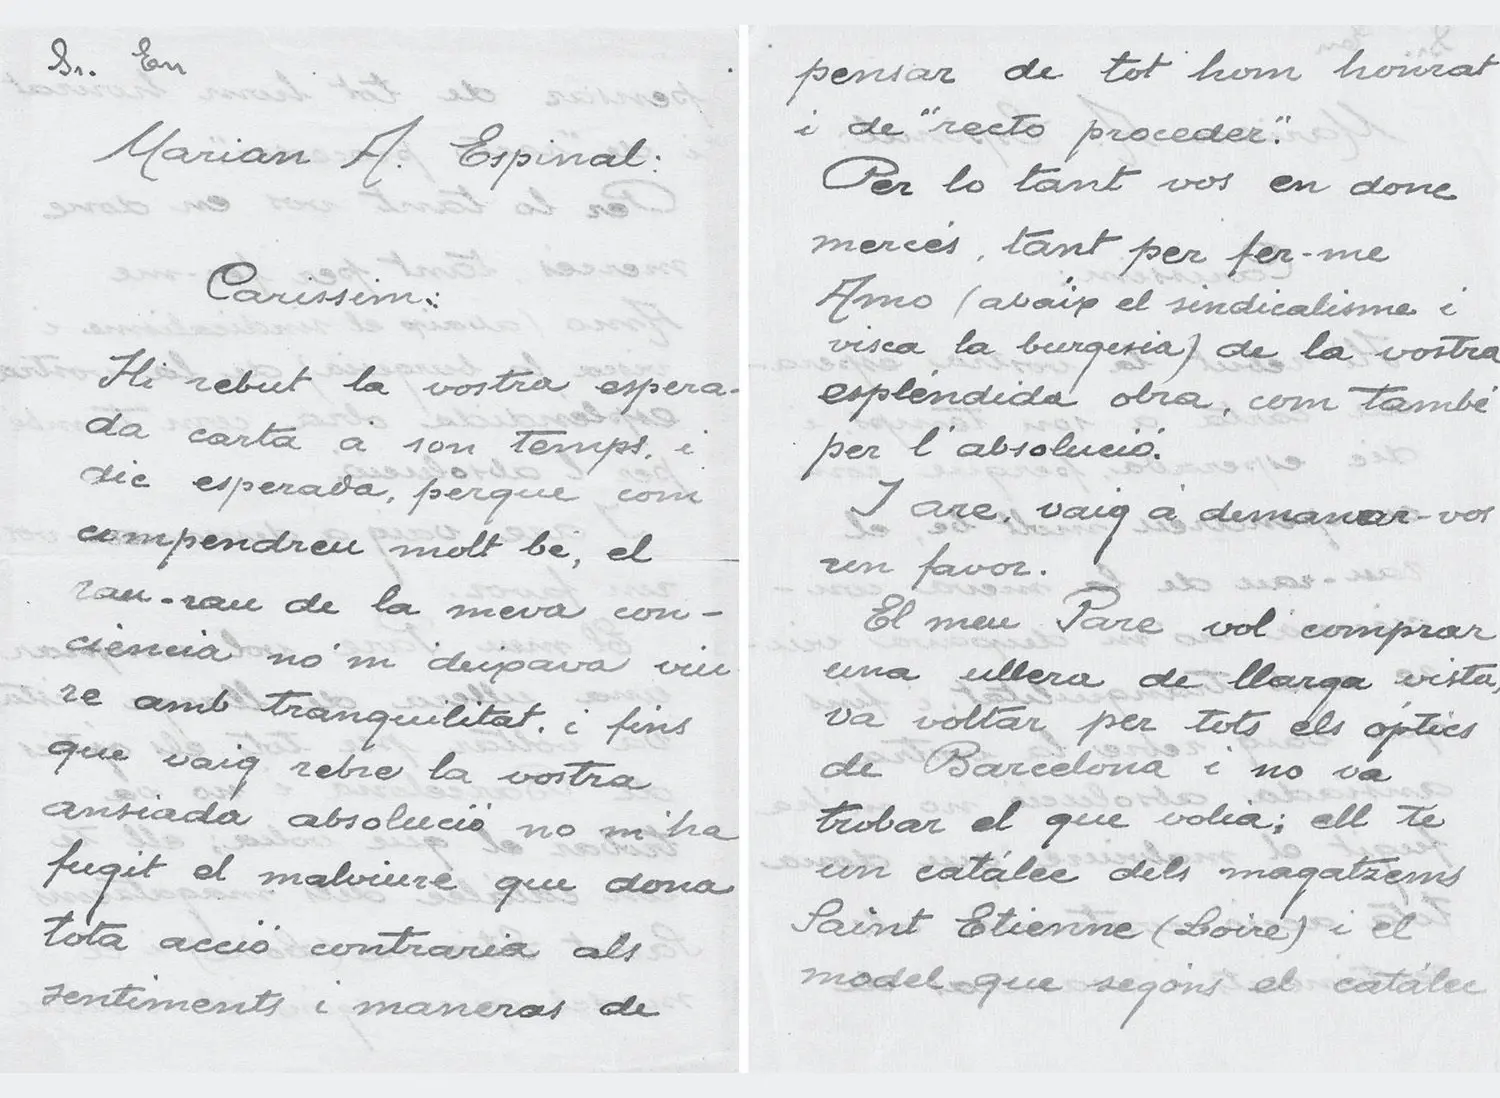 Sr. En
Marian A. Espinal:
Carissim:
Hi rebut la vostra espera-
da carta á son temps, i
dic esperada, perque com
compendreu molt be, el
rau-rau de la meva con-
ciencia no'm deixava viu
re amb tranquilitat, i fins
que vaig rebre la vostra
ansiada absolució no m'ha
fugit el malviure que dona
tota acció contraria als
sentiments i maneras de
pensar de tot hom honrat
i de "recto proceder".
Per lo tant vos en donc
mercés, tant per fer-me
Amo (abaix el sindicalisme i
visca la burgesia) de la vostra
espléndida obra, com també
per l'absolució.
I are, vaig á demanar-vos
un favor.
El meu Pare vol comprar
una ullera de llarga vista,
va voltar per tots els óptics
de Barcelona i no va
trobar el que volia; ell te
un catálec dels magatzems
Saint Etienne (Loire) i el
model que segons el catálec